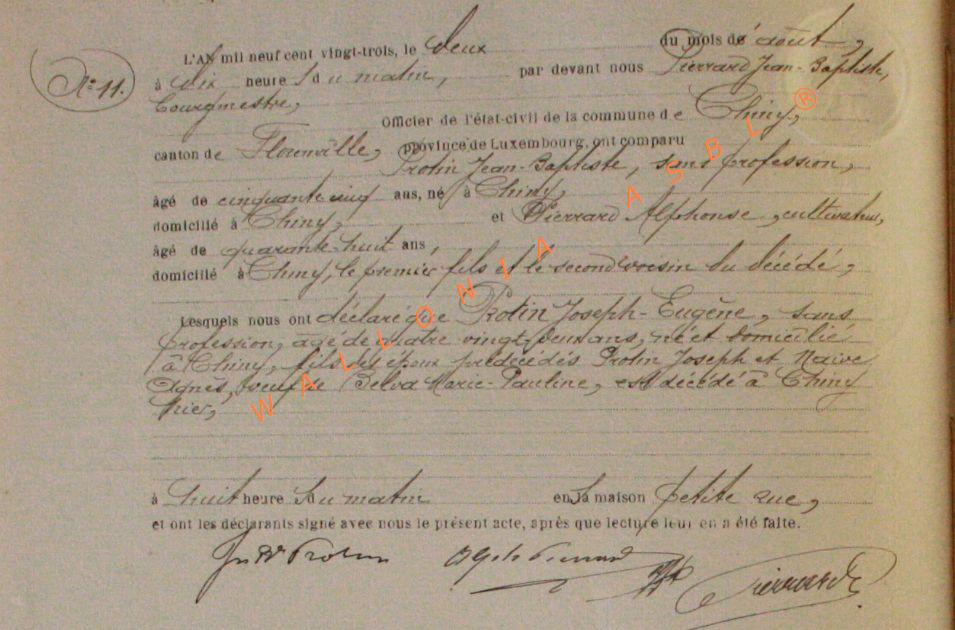 L'AN mil neuf cent vingt-trois, le deux du mois de août,
N° 11.
à dix heures du matin, par devant nous Pierrard Jean-Baptiste,
bourgmestre,
Officier de l'état-civil de la commune de Chiny,
canton de Florenville, province de Luxembourg, ont comparu
Protin Jean-Baptiste, sans profession,
âgé de cinquante cinq ans, né à Chiny,
domicilié à Chiny, et Pierrard Alphonse, cultivateur,
âgé de quarante-huit ans,
domicilié à Chiny, le premier fils et le second voisin du décédé,
Lesquels nous ont déclaré que Protin Joseph-Eugène, sans
profession, âgé de quatre vingt deux ans, né et domicilié
à Chiny, fils des époux prédécédés Protin Joseph et Naive
Agnès, veuf de Selva Marie-Pauline, est décédé à Chiny
hier,
à huit heures du matin en sa maison petite rue,
et ont les déclarants signé avec nous le présent acte, après que lecture leur en a été faite.
Jn Bte Protin Alph Pierrard Pierrard
WALLONIA ASBL ®